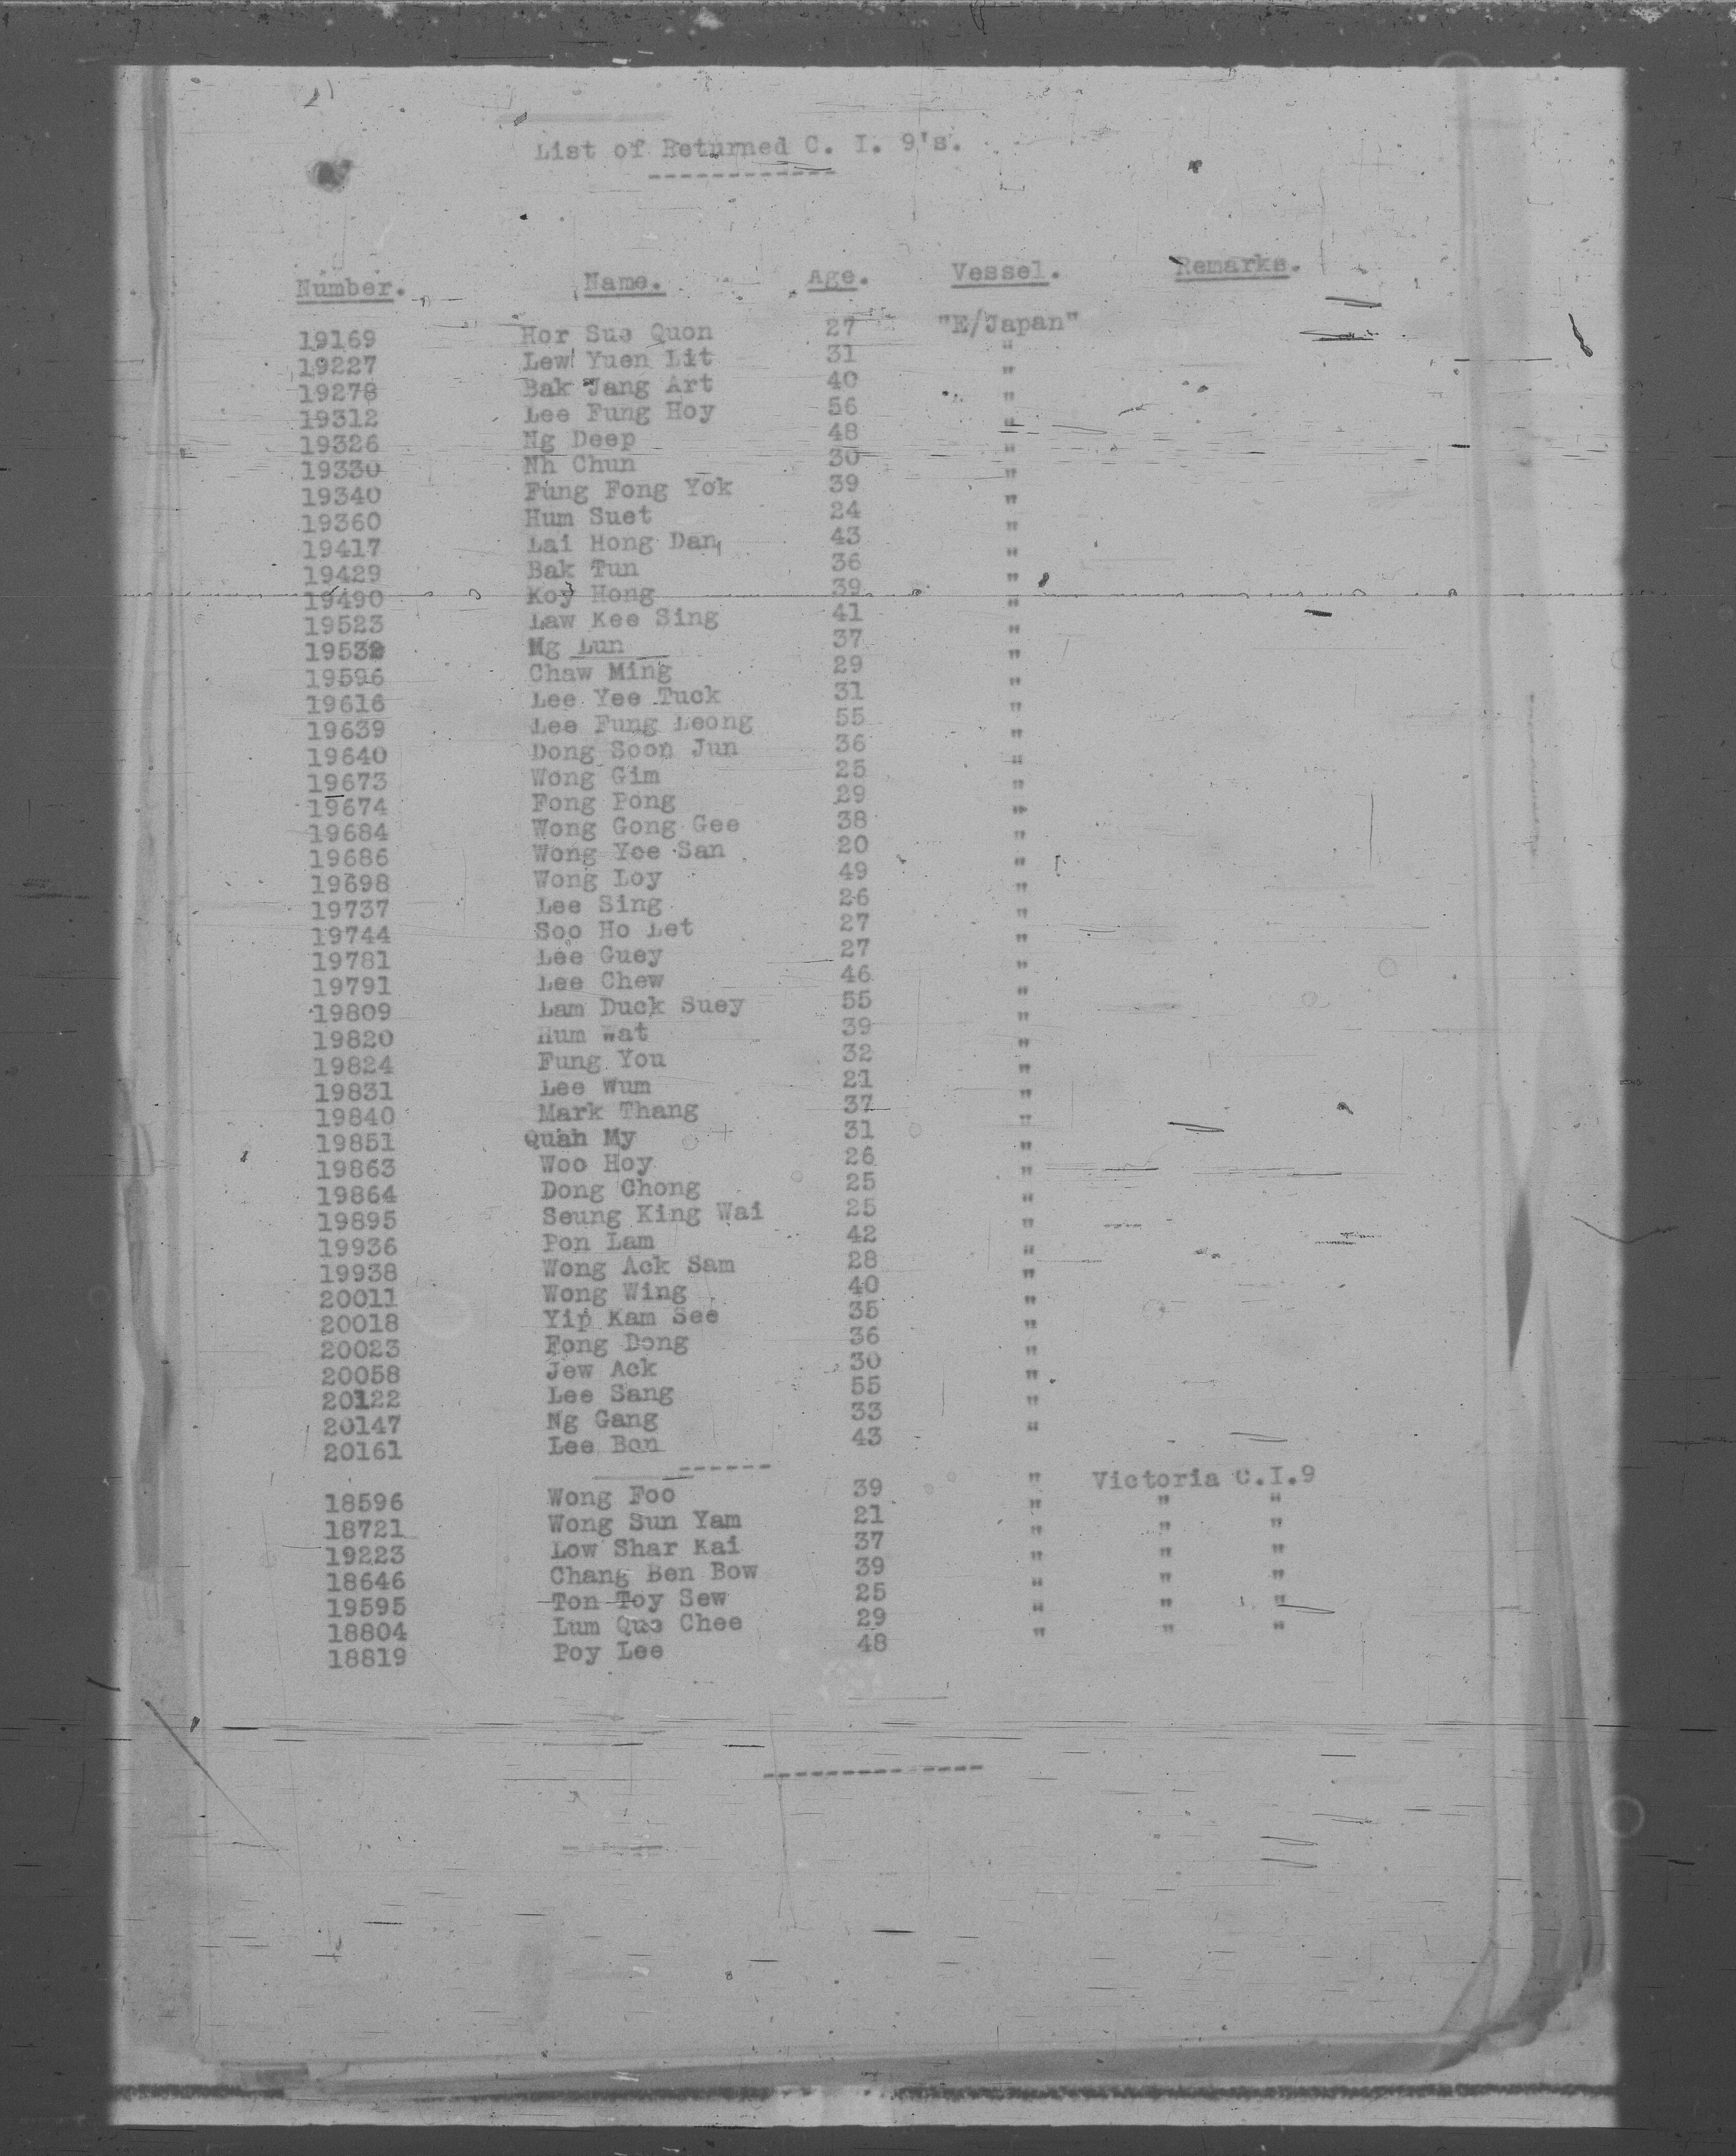 2)
List of Returned C. I. 9's.
Number. Name. Age. Vessel. Remarks.
19169 Hor Sue Quon 27 "E/Japan"
19227 Lew Yuen Lit 31 "
19278 Bak Jang Art 40 "
19312 Lee Fung Hoy 56 "
19326 Ng Deep 48 "
19330 Nh Chun 30 "
19340 Fung Fong Yok 39 "
19360 Hum Suet 24 "
19417 Lai Hong Dan 43 "
19429 Bak Tun 36 "
19490 Koy Hong 39 "
19523 Law Kee Sing 41 "
Ng Lun 37 "
19596 Chaw Ming 29 "
19616 Lee Yee Tuck 31 "
19639 Lee Fung Leong 55 "
19640 Dong Soon Jun 36 "
19673 Wong Gim 25 "
19674 Fong Pong 29 "
19684 Wong Gong Gee 38 "
19686 Wong Yoe San 20 "
19698 Wong Loy 49 "
19737 Lee Sing 26 "
19744 Soo Ho Let 27 "
19781 Lee Guey 27 "
19791 Lee Chew 46 "
19809 Lam Duck Suey 55 "
19820 Hum Wat 39 "
19824 Fung You 32 "
19831 Lee Wum 21 "
19840 Mark Thang 37 "
19851 Quan My 31 "
19863 Woo Hoy 26 "
19864 Dong Chong 25 "
19895 Seung King Wai 25 "
19936 Pon Lam 42 "
19938 Wong Ack Sam 28 "
20011 Wong Wing 40 "
20018 Yip Kam See 35 "
20023 Fong Dong 36 "
20058 Jew Ack 30 "
20122 Lee Sang 55 "
20147 Ng Gang 33 "
20161 Lee Bon 43 "
------
18596 Wong Foo 39 " Victoria C.I.9
18721 Wong Sun Yam 21 " " "
19223 Low Shar Kai 37 " " "
18646 Chang Ben Bow 39 " " "
19595 Ton Toy Sew 25 " " "
18804 Lum Quo Chee 29 " " "
18819 Poy Lee 48 " " "